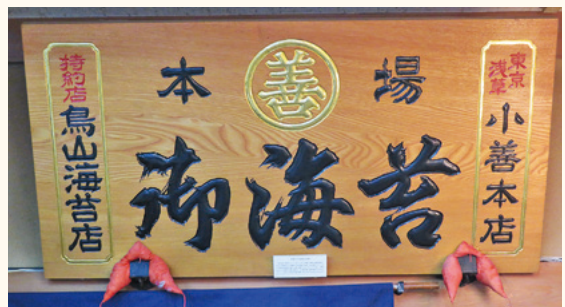 特約店
鳥山海苔店
本 善 場
御海苔
東京
浅草
小善本店